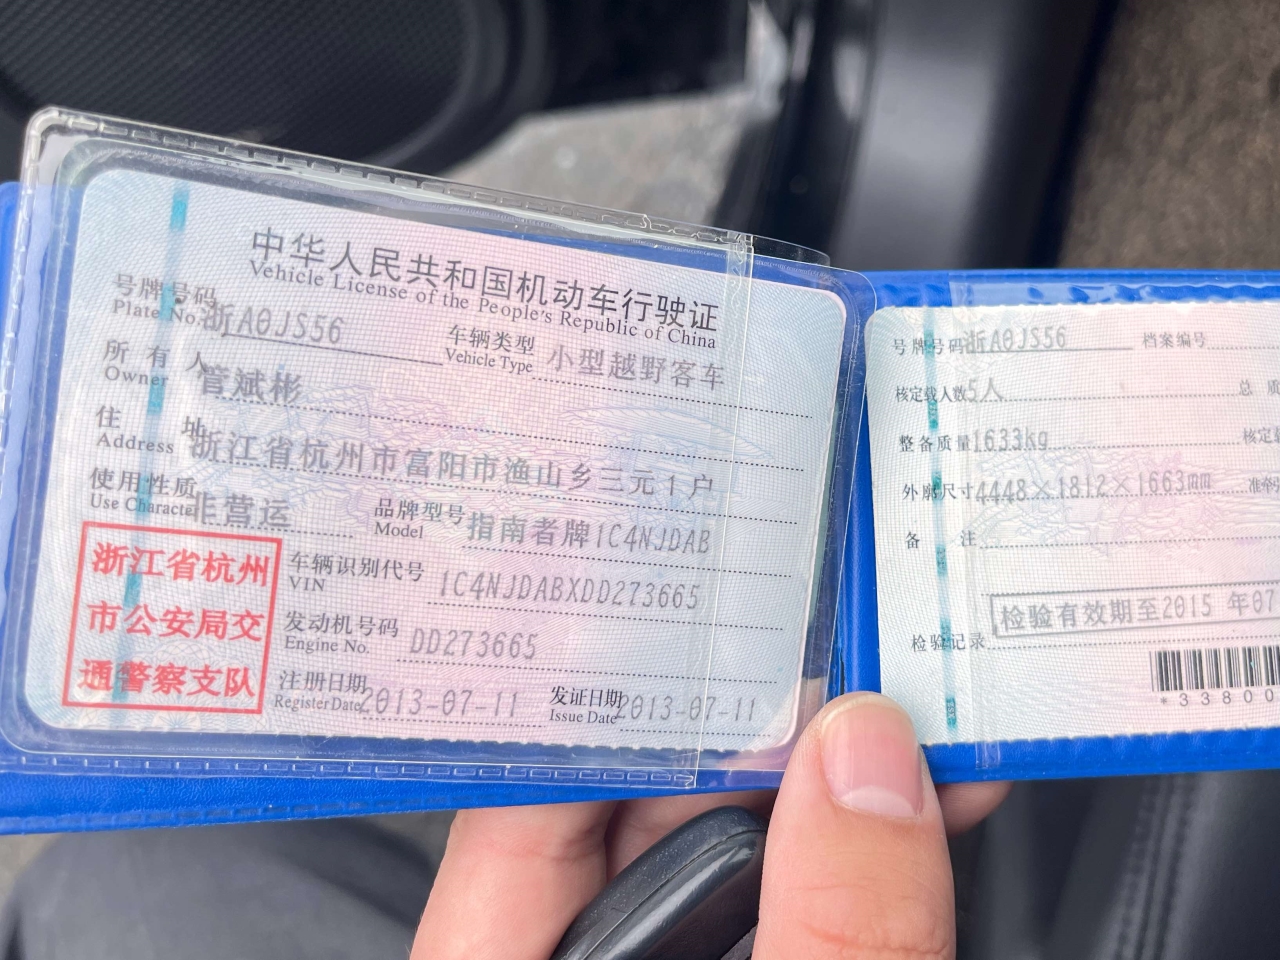 中华人民共和国机动车行驶证
Vehicle License of the People's Republic of China
号牌号码 浙A0JS56 车辆类型 小型越野客车
Plate No. Vehicle Type
所有人 管斌彬
Owner
住地 浙江省杭州市富阳市渔山乡三元1户
Address
使用性质 非营运 品牌型号 指南者牌1C4NJDAB
Use Characte Model
浙江省杭州
市公安局交
通警察支队
车辆识别代号 1C4NJDABXDD273665
VIN
发动机号码 DD273665
Engine No.
注册日期 2013-07-11 发证日期 2013-07-11
Register Date Issue Date
号牌号码 浙A0JS56 档案编号
核定载人数 5人 总质
整备质量 1633kg 核定
外廓尺寸 4448×1812×1663mm 准牵
备注
检验有效期至2015年07
检验记录
*33800